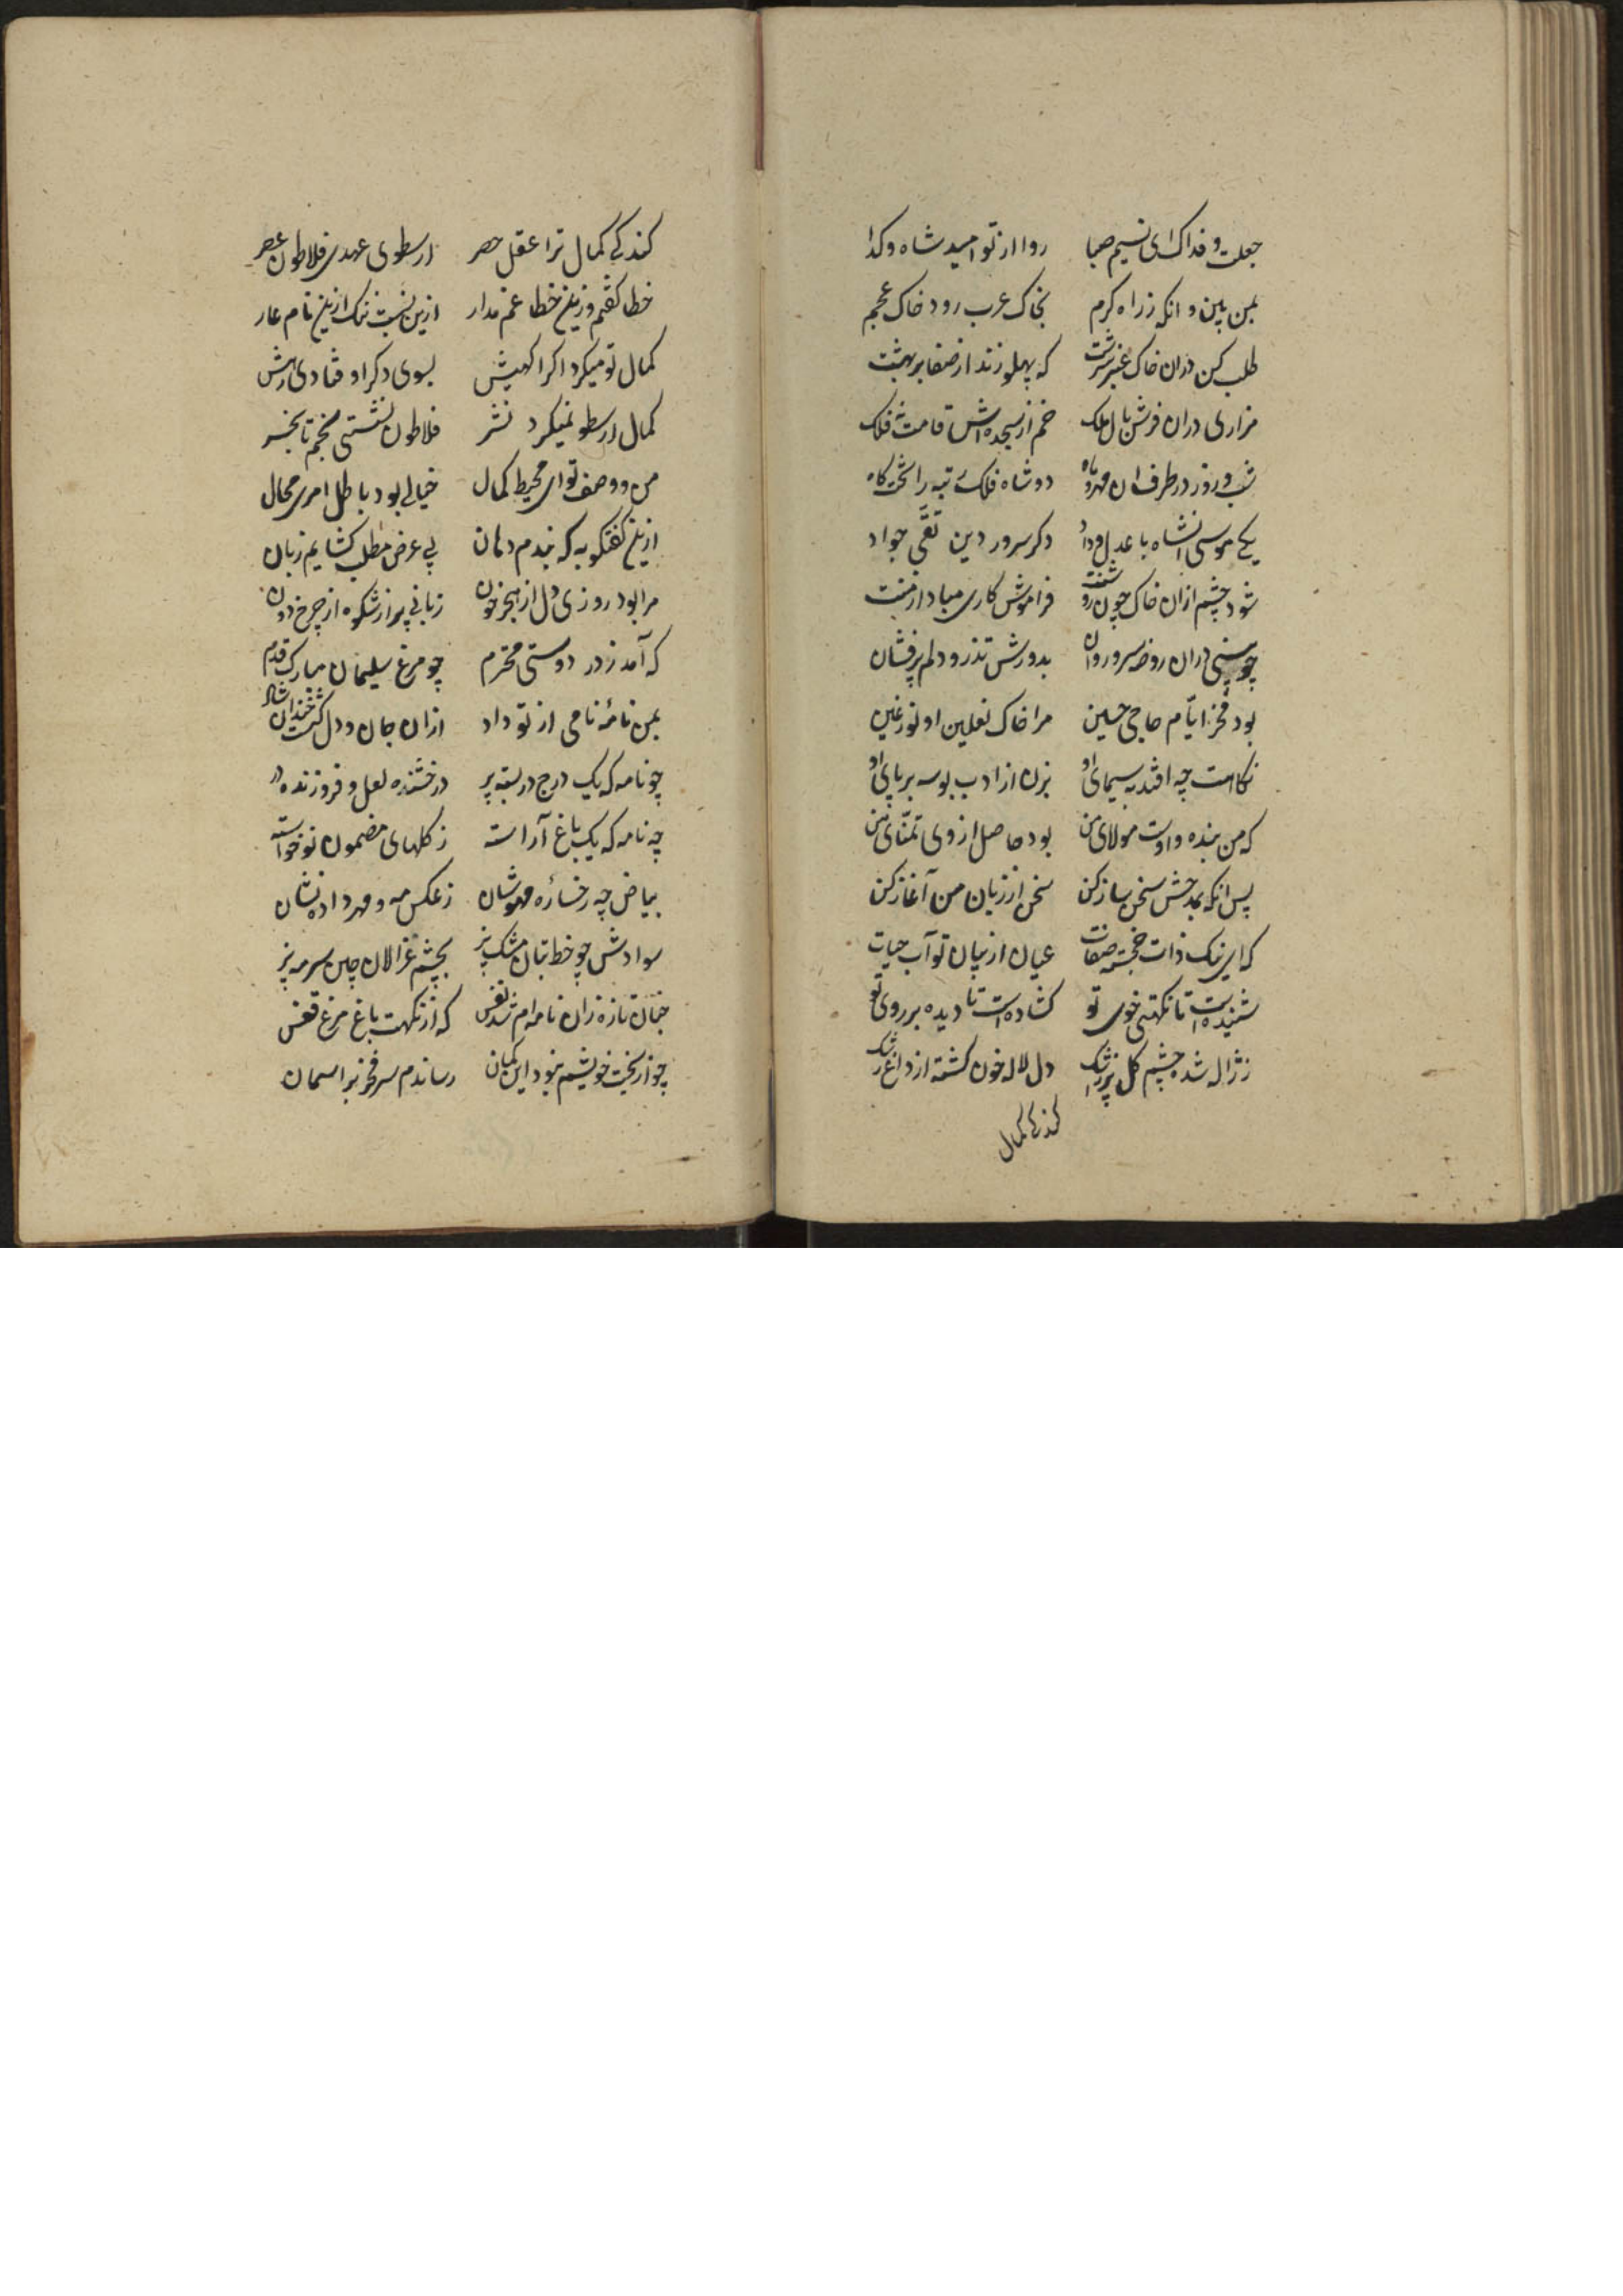 جعلت فداک ای نسیم صبا روا از تو امید شاه و کدا
بمن بین و انکه ز راه کرم بخاک عرب رو د خاک عجم
طلب کن دران خاک عنبر سرشت که پهلو زند از صفا بر بهشت
مزاری دران فرشش بال ملک خم از سجده اش قامت فلک
شب و روز در طرف ان مهر و ماه دو شاه فلک رتبه را تختکاه
یکی موسی انشاه با عدل و داد دکر سرور دین تقی جواد
شود چشم ازان خاک چون رو فراموش کاری مبادا ز منت
چو بینی دران روضه سرو روان بدورش تذرو دلم پرفشان
بود فخر ایام حاجی حسین مرا خاک نعلین او نور عین
نکاهت چه افتد بسیمای او بزن از ادب بوسه بر پای او
که من بنده و اوست مولای من بود حاصل از وی تمنای من
پس انکه بمدحش سخن ساز کن سخن از زبان من آغاز کن
که این نیک ذات خجسته صفات عیان از بیان تو آب حیات
شنیده است تا نکهتی خوی تو کشاده است تا دیده بر روی تو
ز ژاله شده چشم کل پر ز اشک دل لاله خون کشته از داغ رشک
کند کی کمال
کند کی کمال ترا عقل حصر ارسطوی عهدی فلاطون عصر
خطا کفتم و زین خطا غم مدار ازین نسبت ننک ازین نام عار
کمال تو میکرد اکر اکهیش بسوی دکر اوفتادی رهش
کمال ارسطو نمیکرد نشر فلاطون نشستی بخم تا بحشر
من و وصف تو ای محیط کمال خیالی بود باطل امری محال
ازین کفتکو به که بندم دهان پی عرض مطلب کشایم زبان
مرا بود روزی دل از هجر خون زبانی پر از شکوه از چرخ دون
که آمد ز در دوستی محترم چو مرغ سلیمان مبارک قدم
بمن نامهٔ نامی از تو داد ازان جان و دل کشت خندان شاد
چو نامه که یک درج در بسته پر درخشنده لعل و فروزنده در
چه نامه که یک باغ آراسته ز کلهای مضمون نوخواسته
بیاض چه رخساره مهوشان ز عکس مه و مهر داده نشان
سوادش چو خط بتان مشک بیز بچشم غزالان چین سرمه بیز
چنان تازه زان نامه ام شد نفس که از نکهت باغ مرغ قفس
چو از بخت خویشم نبود این کمان رساندم سر فخر بر اسمان